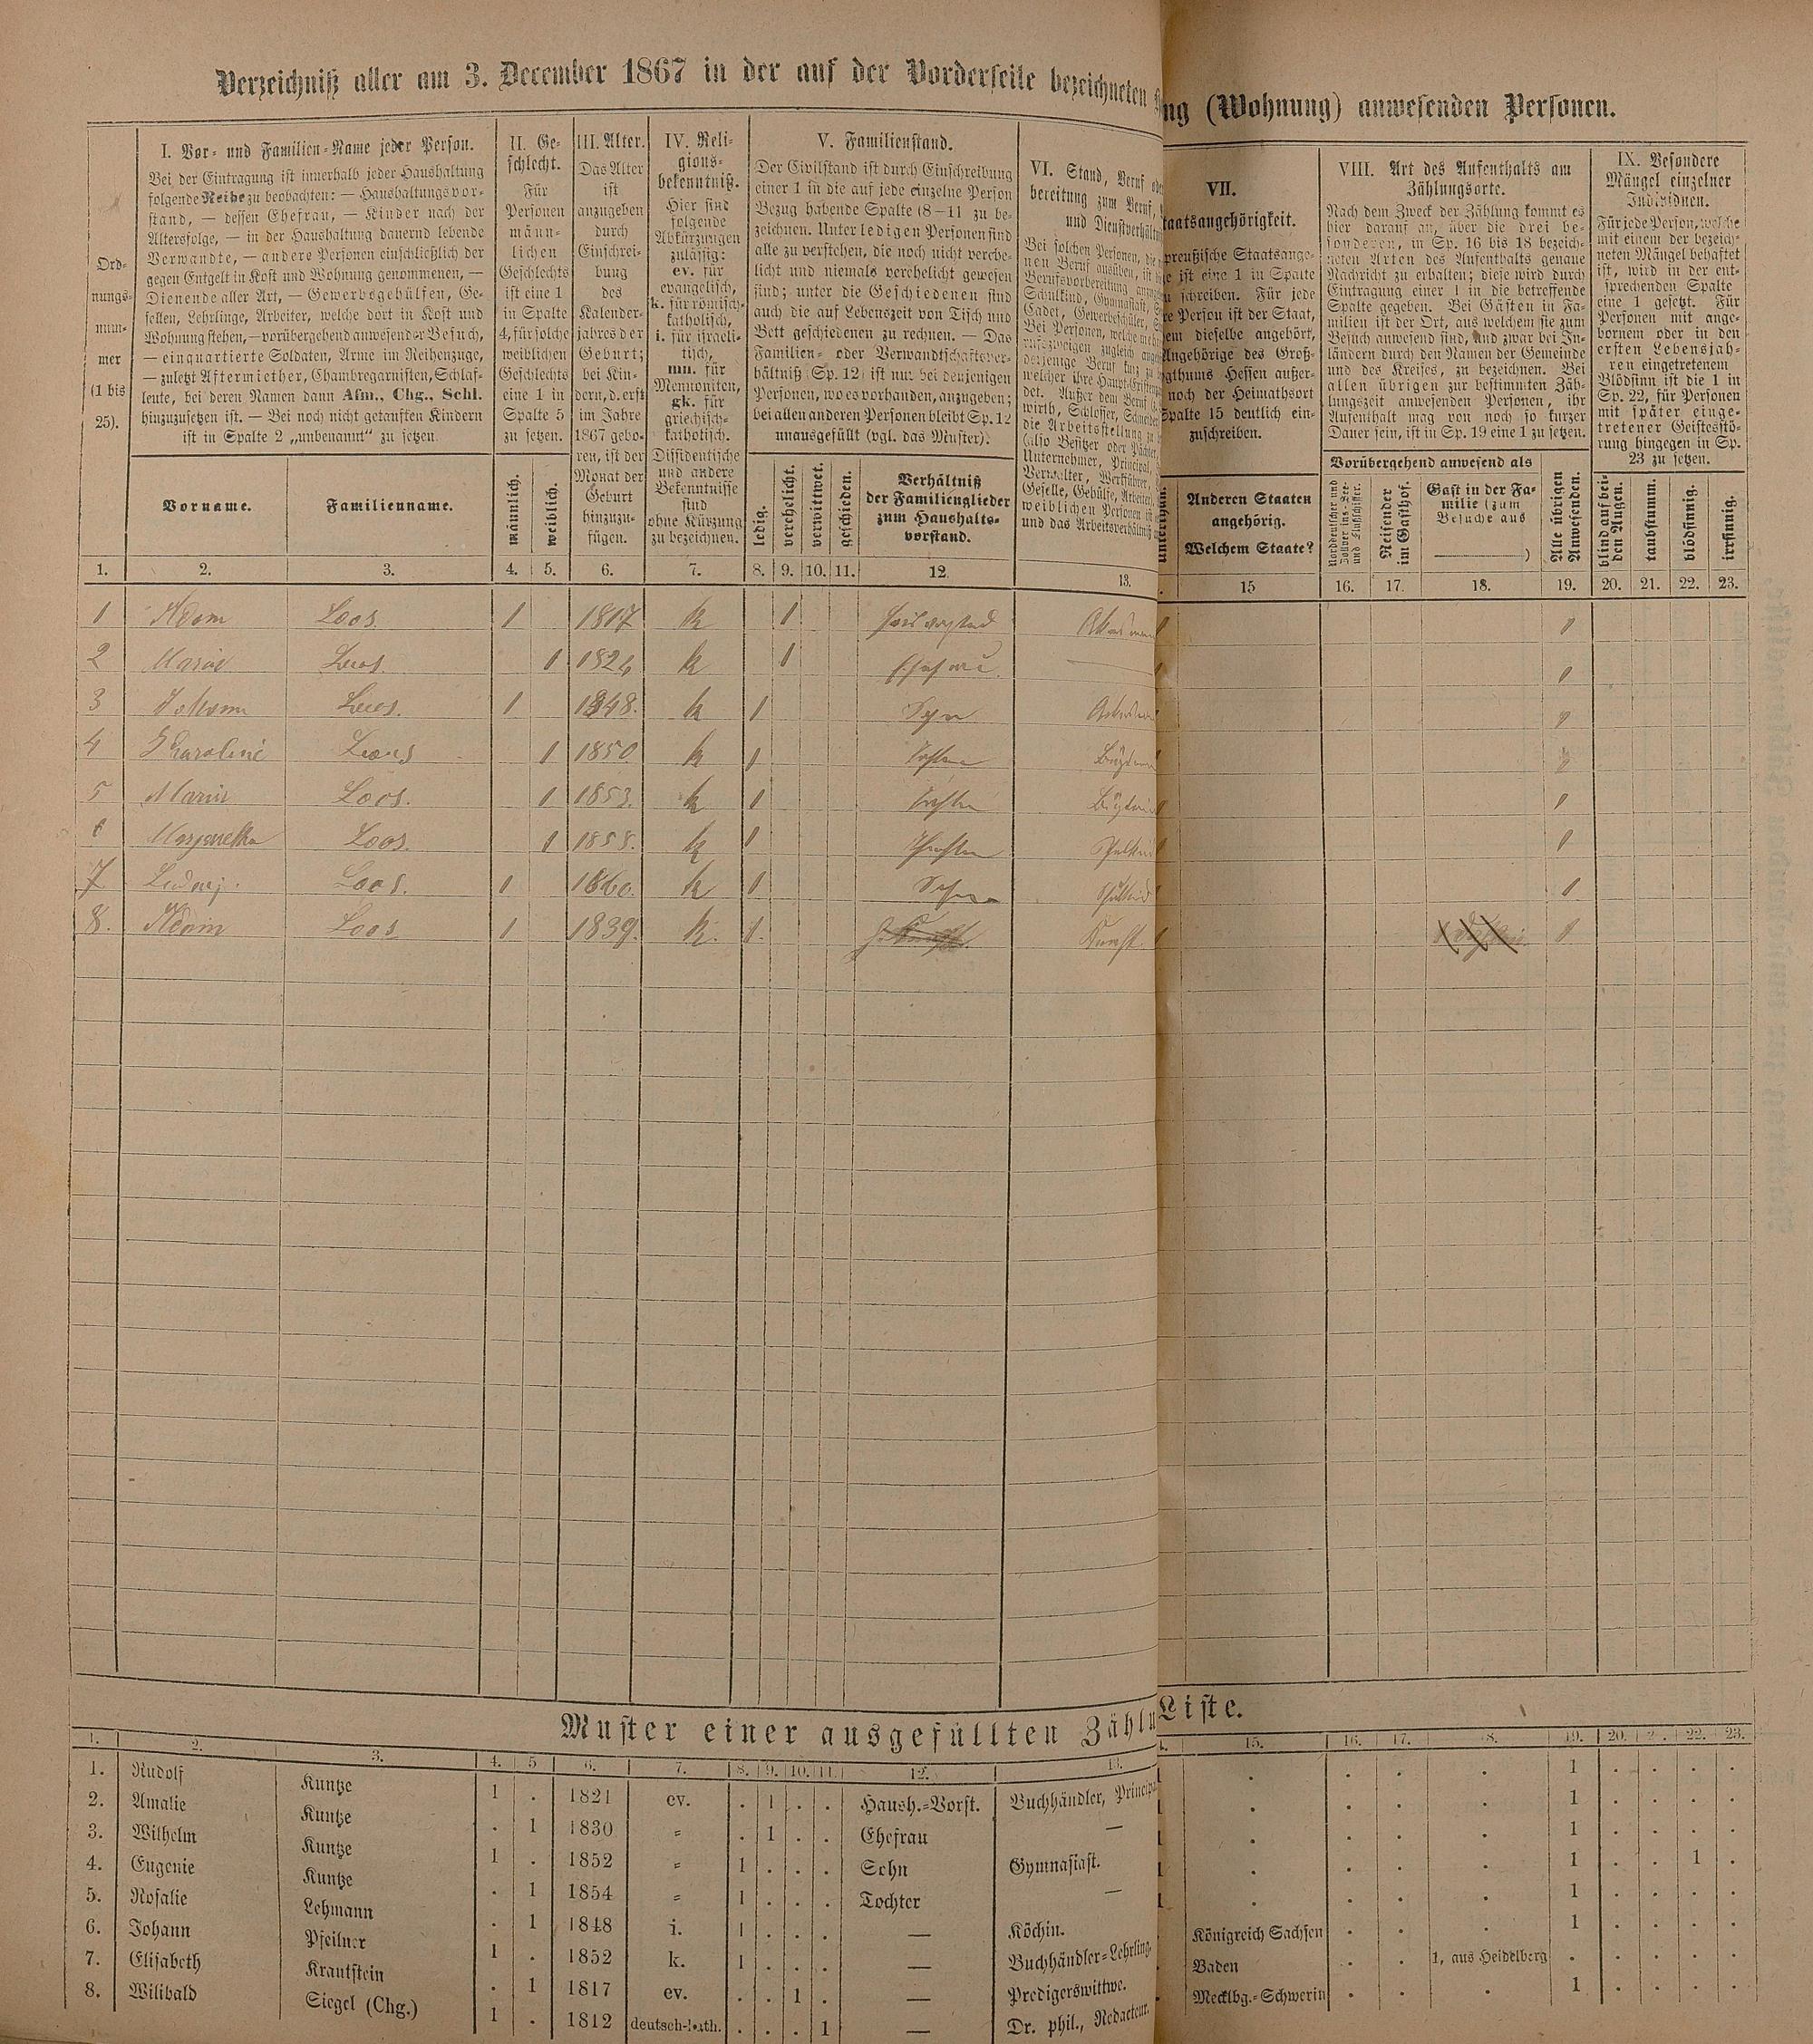 Verzeichniß aller am 3. December 1867 in der auf der Vorderseite bezeichneten
ng (Wohnung) anwesenden Personen.
Ord-
nungs-
num-
mer
(1 bis
25).
I. Vor- und Familien-Name jeder Person.
Bei der Eintragung ist innerhalb jeder Haushaltung
folgende Reihe zu beobachten: — Haushaltungsvor-
stand, — dessen Ehefrau, — Kinder nach der
Altersfolge, — in der Haushaltung dauernd lebende
Verwandte, — andere Personen einschließlich der
gegen Entgelt in Kost und Wohnung genommenen, —
Dienende aller Art, — Gewerbsgehülfen, Ge-
sellen, Lehrlinge, Arbeiter, welche dort in Kost und
Wohnung stehen, — vorübergehend anwesender Besuch,
— einquartierte Soldaten, Arme im Reihenzuge,
— zuletzt Aftermiether, Chambregarnisten, Schlaf-
leute, bei deren Namen dann Afm., Chg., Schl.
hinzuzusetzen ist. — Bei noch nicht getauften Kindern
ist in Spalte 2 „unbenannt“ zu setzen
Vorname.
Familienname.
II. Ge-
schlecht.
Für
Personen
männ-
lichen
Geschlechts
ist eine 1
in Spalte
4, für solche
weiblichen
Geschlechts
eine 1 in
Spalte 5
zu setzen.
männlich.
weiblich.
III. Alter.
Das Alter
ist
anzugeben
durch
Einschrei-
bung
des
Kalender-
jahres der
Geburt;
bei Kin-
dern, d. erst
im Jahre
1867 gebo-
ren, ist der
Monat der
Geburt
hinzuzu-
fügen.
IV. Reli-
gions-
bekenntniß.
Hier sind
folgende
Abkürzungen
zulässig:
ev. für
evangelisch,
k. für römisch-
katholisch,
i. für israeli-
tisch,
mn. für
Mennoniten,
gk. für
griechisch-
katholisch.
Dissidentische
und andere
Bekenntnisse
sind
ohne Kürzung
zu bezeichnen.
V. Familienstand.
Der Civilstand ist durch Einschreibung
einer 1 in die auf jede einzelne Person
Bezug habende Spalte (8—11 zu be-
zeichnen. Unter ledigen Personen sind
alle zu verstehen, die noch nicht verehe-
licht und niemals verehelicht gewesen
sind; unter die Geschiedenen sind
auch die auf Lebenszeit von Tisch und
Bett geschiedenen zu rechnen. — Das
Familien- oder Verwandtschaftsver-
hältniß (Sp. 12) ist nur bei denjenigen
Personen, wo es vorhanden, anzugeben;
bei allen anderen Personen bleibt Sp. 12
unausgefüllt (vgl. das Muster).
ledig.
verehelicht.
verwittwet.
geschieden.
Verhältniß
der Familienglieder
zum Haushalts-
vorstand.
VI. Stand, Beruf
bereitung zum Beruf,
und Dienstverhält
Bei solchen Personen, die
nen Beruf ausüben, ist
Berufsvorbereitung
Schulkind, Gymnasiast,
Cadet, Gewerbeschüler,
Bei Personen, welche
rufszweigen zugleich
derjenige Beruf
welcher ihre Haupt-
det. Außer dem Beruf
wirth, Schlosser,
die Arbeitsstellung zu
(also Besitzer oder Pächter,
Unternehmer, Principal,
Verwalter, Werkführer,
Geselle, Gehülfe, Arbeiter,
weiblichen Personen
und das Arbeitsverhältniß
VII.
taatsangehörigkeit.
preußische Staatsange-
ist eine 1 in Spalte
schreiben. Für jede
re Person ist der Staat,
em dieselbe angehört,
Angehörige des Groß-
gthums Hessen außer-
noch der Heimathsort
Spalte 15 deutlich ein-
zuschreiben.
Anderen Staaten
angehörig.
Welchem Staate?
VIII. Art des Aufenthalts am
Zählungsorte.
Nach dem Zweck der Zählung kommt es
hier darauf an, über die drei be-
sonderen, in Sp. 16 bis 18 bezeich-
neten Arten des Aufenthalts genaue
Nachricht zu erhalten; diese wird durch
Eintragung einer 1 in die betreffende
Spalte gegeben. Bei Gästen in Fa-
milien ist der Ort, aus welchem sie zum
Besuch anwesend sind, und zwar bei In-
ländern durch den Namen der Gemeinde
und des Kreises, zu bezeichnen. Bei
allen übrigen zur bestimmten Zäh-
lungszeit anwesenden Personen, ihr
Aufenthalt mag von noch so kurzer
Dauer sein, ist in Sp. 19 eine 1 zu setzen.
Vorübergehend anwesend als
Reisender
im Gasthof.
Gast in der Fa-
milie (zum
Besuche aus
)
Alle übrigen
Anwesenden.
IX. Besondere
Mängel einzelner
Individuen.
Für jede Person, welche
mit einem der bezeich-
neten Mängel behaftet
ist, wird in der ent-
sprechenden Spalte
eine 1 gesetzt. Für
Personen mit ange-
bornem oder in den
ersten Lebensjah-
ren eingetretenem
Blödsinn ist die 1 in
Sp. 22, für Personen
mit später einge-
tretener Geistesstö-
rung hingegen in Sp.
23 zu setzen.
blind auf bei-
den Augen.
taubstumm.
blödsinnig.
irrsinnig.
1. 2. 3. 4. 5. 6. 7. 8. 9. 10. 11. 12. 13. 15 16. 17. 18. 19. 20. 21. 22. 23.
1 Adam Loos 1 1817 k 1 1
2 Marie Loos 1 1826 k 1 Ehefrau 1
3 Johann Loos. 1 1848. k 1 Sohn 1
4 Karoline Loos 1 1850 k 1 Tochter 1
5 Marie Loos. 1 1853. k 1 Tochter 1
6 Margaretha Loos. 1 1858. k 1 Tochter 1
7 Ludwig. Loos. 1 1860. k 1 Sohn 1
8. Adam Loos 1 1839. k. 1. Knecht. 1
Muster einer ausgefüllten Zählu Liste.
1. 2. 3. 4. 5 6. 7. 8. 9. 10. 11. 12. 13. 15. 16. 17. 18. 19. 20. 22. 23.
1. Rudolf Kuntze 1 . 1821 ev. . 1 . . Haush.-Vorst. Buchhändler, Princip . . . . 1 . . . .
2. Amalie Kuntze . 1 1830 „ . 1 . . Ehefrau — . . . . 1 . . . .
3. Wilhelm Kuntze 1 . 1852 „ 1 . . . Sohn Gymnasiast. . . . . 1 . . . .
4. Eugenie Kuntze . 1 1854 „ 1 . . . Tochter — . . . . 1 . . 1 .
5. Rosalie Lehmann . 1 1848 i. 1 . . . — Köchin. . . . . 1 . . . .
6. Johann Pfeilner 1 . 1852 k. 1 . . . — Buchhändler-Lehrling. Königreich Sachsen . . . 1 . . . .
7. Elisabeth Krautstein . 1 1817 ev. . . 1 . — Predigerswittwe. Baden . . 1, aus Heidelberg . . . . .
8. Wilibald Siegel (Chg.) 1 . 1812 deutsch-kath. . . . 1 — Dr. phil., Redacteur. Mecklbg.-Schwerin . . . 1 . . . .